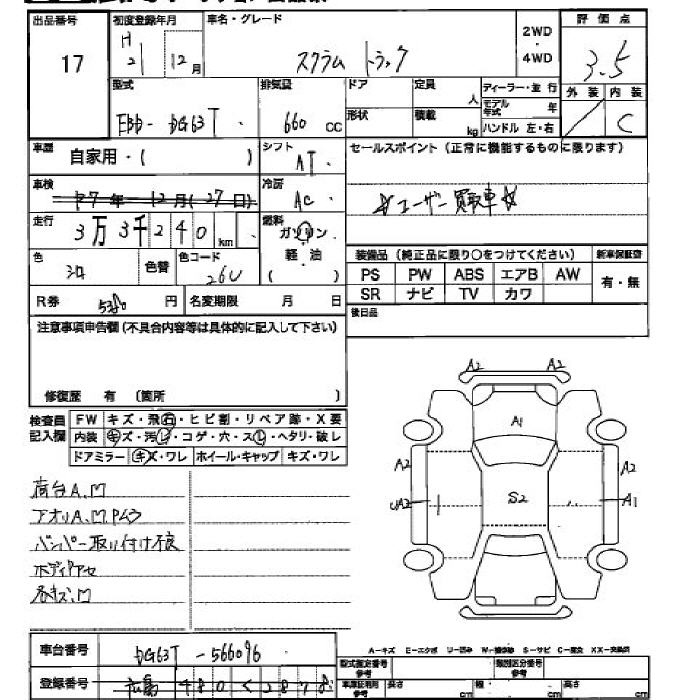 出品番号 初度登録年月 車名・グレード 2WD・4WD 評価点
17 H21 12月 スクラム トラック 3.5
型式 排気量 ドア 定員 人 ディーラー・並行 外装 内装
EBD-DG63T 660 cc 形状 積載 kg モデル年式 年 C
ハンドル 左・右
車歴 自家用・( ) シフト AT セールスポイント(正常に機能するものに限ります)
車検 27年 12月(27日) 冷房 AC ☆ユーザー買取車☆
走行 3万3千240km 燃料 ガソリン・軽油 ( )
装備品(純正品に限り○をつけてください) 新車保証書
色 シロ 色替 色コード 26U PS PW ABS エアB AW 有・無
SR ナビ TV カワ
R券 5380円 名変期限 月 日 後日品
注意事項申告欄(不具合内容等は具体的に記入して下さい)
修復歴 有 (箇所 )
検査員記入欄 FW キズ・飛石・ヒビ割・リペア跡・X要
内装 キズ・汚レ・コゲ・穴・スレ・ヘタリ・破レ
ドアミラー キズ・ワレ ホイール・キャップ キズ・ワレ
荷台A.凹
アオリA.凹.Pムラ
バンパー取り付け不良
ボディPアセ
各キズ.凹
A2 A2
A1
A2 A2
UA2 S2 A1
車台番号 DG63T-566096
登録番号 広島 480 く 2878
A-キズ E-エクボ U-凹み W-補修跡 S-サビ C-腐食 XX-交換済
型式指定番号 参考 類別区分番号 参考
車庫証明用 参考 長さ cm 幅 cm 高さ cm